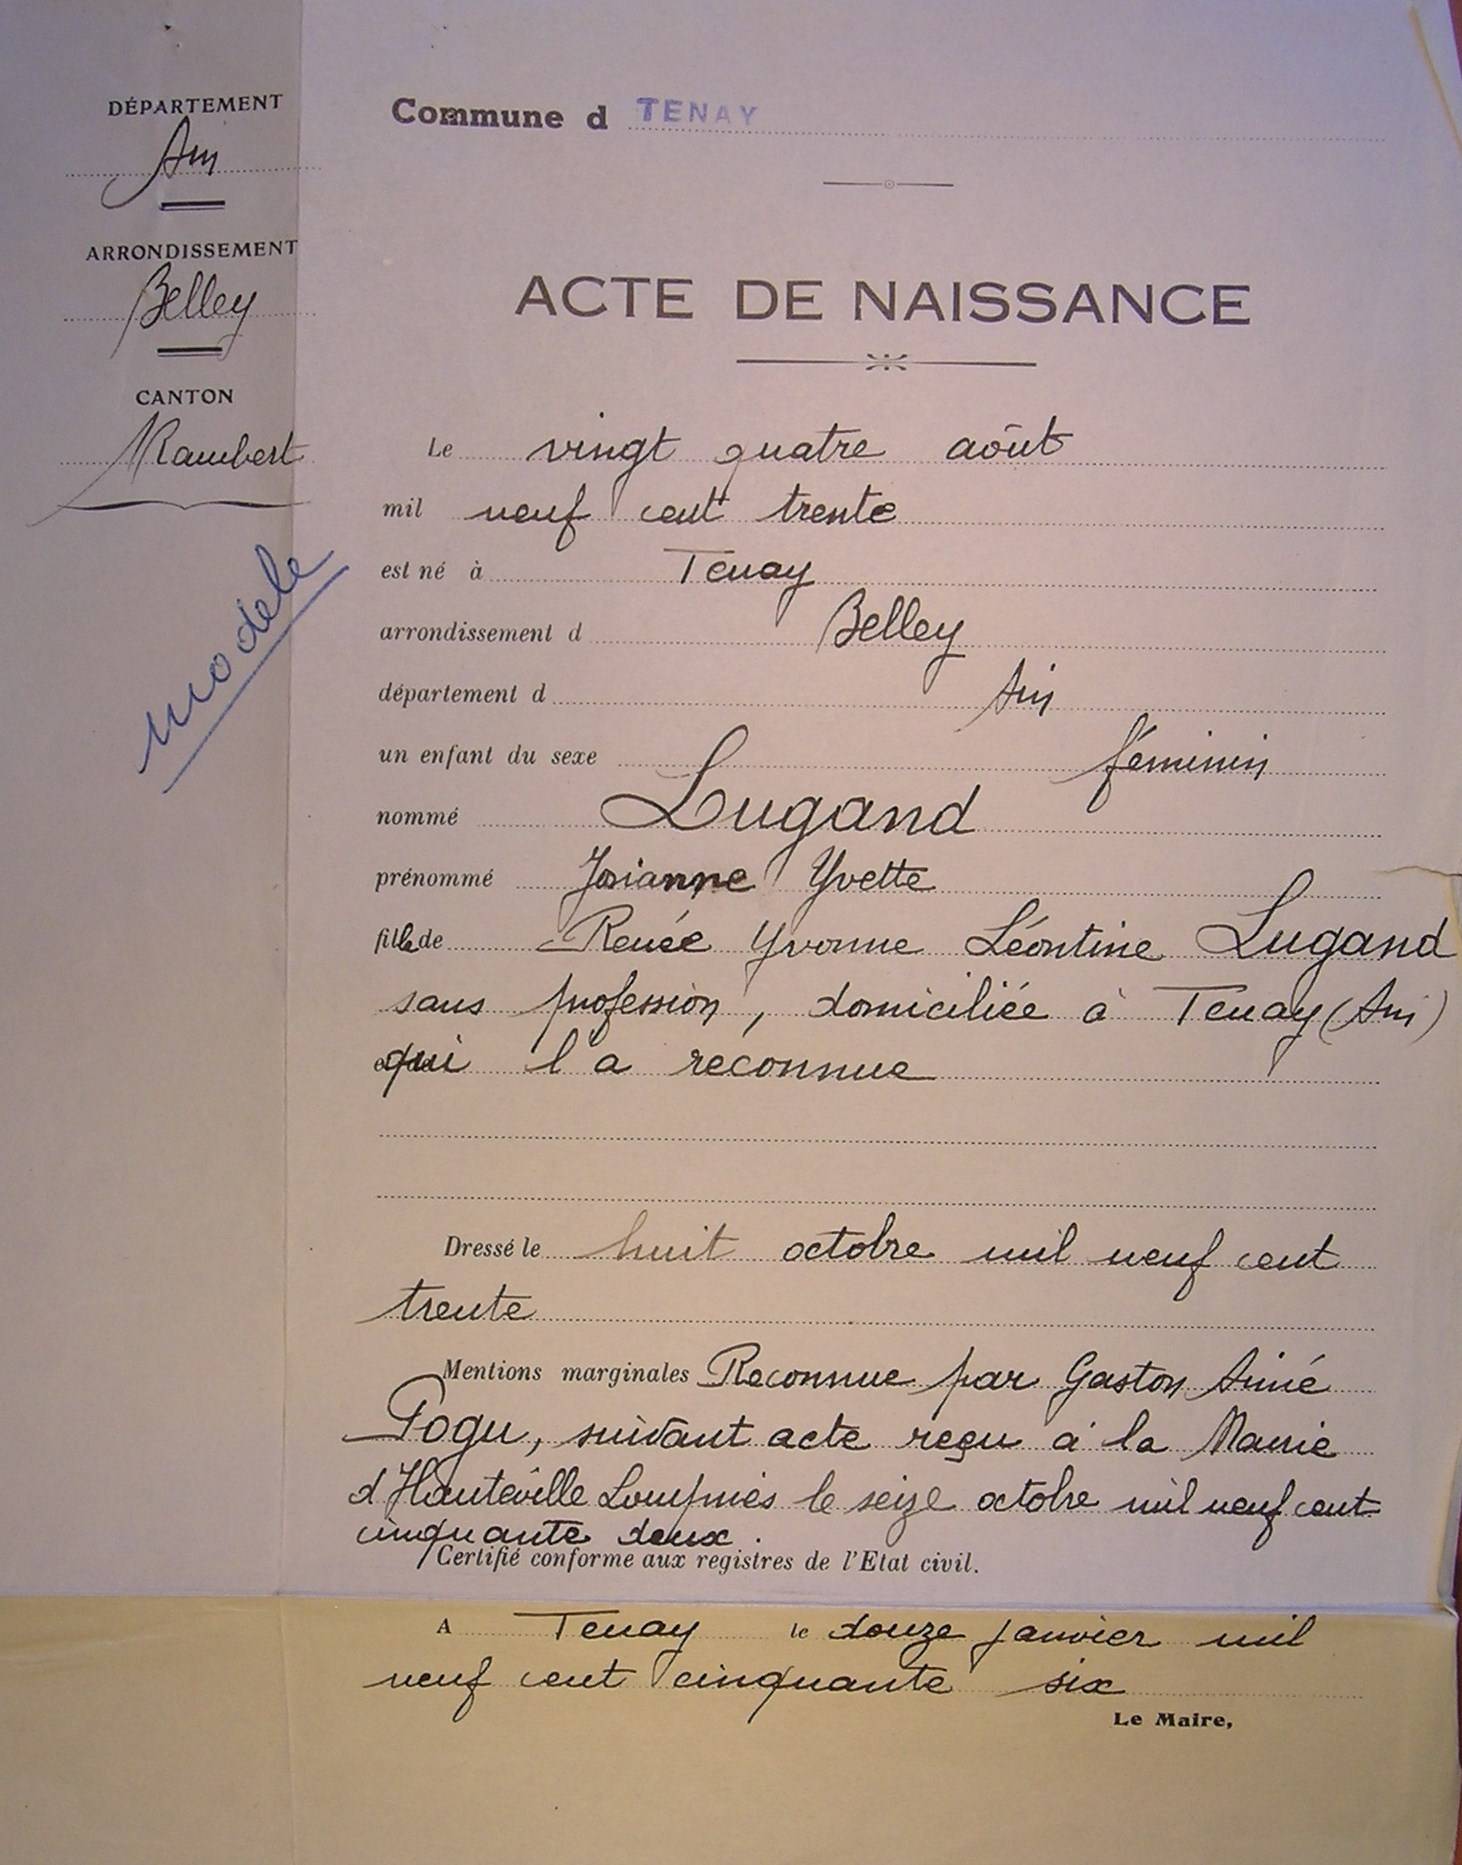 DÉPARTEMENT
Ain
ARRONDISSEMENT
Belley
CANTON
Rambert
modele
Commune d TENAY
ACTE DE NAISSANCE
Le vingt quatre août
mil neuf cent trente
est né à Tenay
arrondissement d Belley
département d Ain
un enfant du sexe féminin
nommé Lugand
prénommé Josianne Yvette
fille de Renée Yvonne Léontine Lugand
sans profession, domiciliée à Tenay (Ain)
qui l'a reconnue
Dressé le huit octobre mil neuf cent
trente
Mentions marginales Reconnue par Gaston Aimé
Pogu, suivant acte reçu à la Mairie
d'Hauteville Lompnès le seize octobre mil neuf cent
cinquante deux.
Certifié conforme aux registres de l'Etat civil.
A Tenay le douze janvier mil
neuf cent cinquante six
Le Maire,